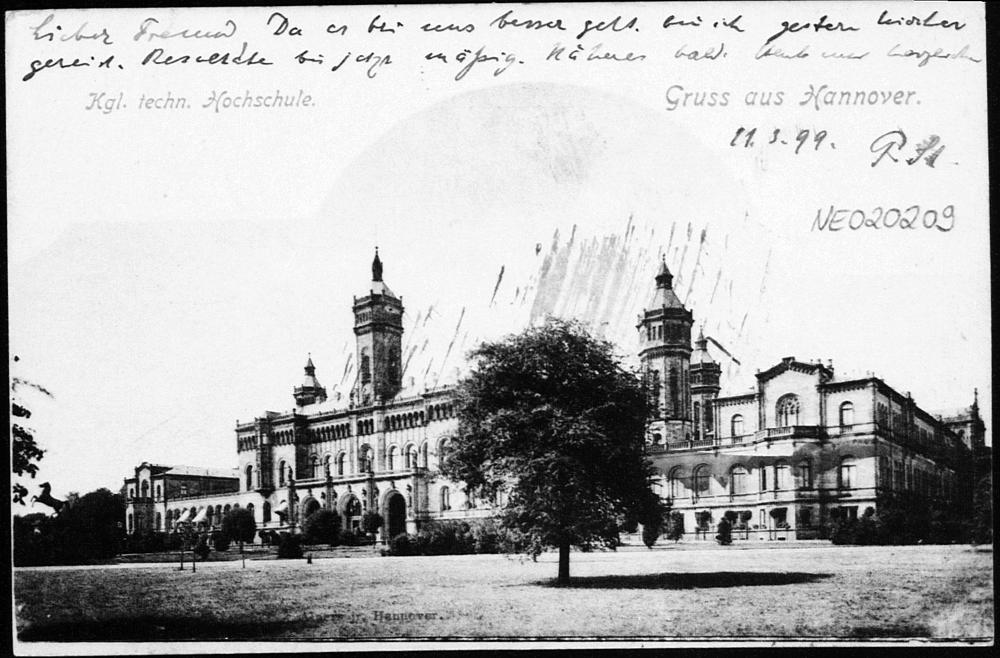 Lieber Freund Da es bei uns besser geht. bin ich gestern hierher
gereist. Resultate bis jetzt mäßig. Näheres bald. Heute nur herzlichen
Kgl. techn. Hochschule.
Gruss aus Hannover.
11.3.99.
P. St.
NE020209
Hannover.